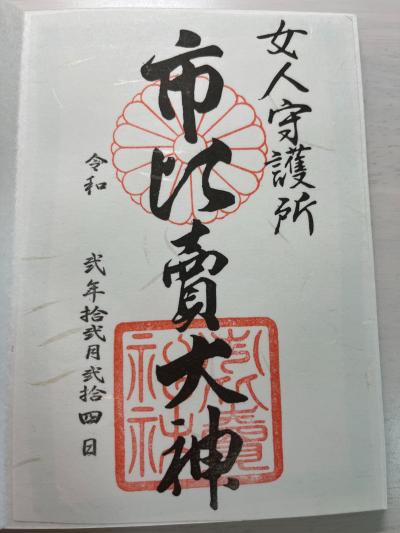 女人守護所
市比賣大神
令和 弐年拾弐月弐拾四日